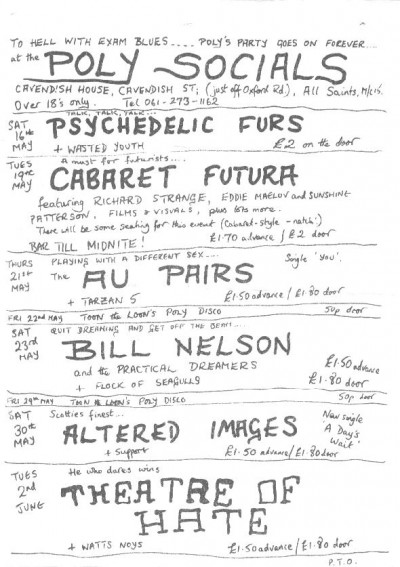 TO HELL WITH EXAM BLUES .... POLY'S PARTY GOES ON FOREVER....
at the POLY SOCIALS
CAVENDISH HOUSE, CAVENDISH ST; (just off Oxford Rd), All Saints, M/c 15.
Over 18's only. Tel 061-273-1162
TALK, TALK, TALK...
SAT 16th MAY PSYCHEDELIC FURS
+ WASTED YOUTH £2 on the door
TUES 19th MAY a must for futurists....
CABARET FUTURA
featuring RICHARD STRANGE, EDDIE MAELOV and SUNSHINE
PATTERSON, FILMS & VISUALS, plus lots more.
There will be some seating for this event (Cabaret-style - natch!)
BAR TILL MIDNITE! £1.70 advance / £2 door
THURS 21st MAY PLAYING WITH A DIFFERENT SEX... Single 'You'.
The AU PAIRS
+ TARZAN 5 £1.50 advance / £1.80 door
FRI 22nd MAY TOON the LOON'S POLY DISCO 50p door
SAT 23rd MAY QUIT DREAMING AND GET OFF THE BEAM....
BILL NELSON
and the PRACTICAL DREAMERS £1.50 advance
+ FLOCK OF SEAGULLS £1.80 door
FRI 29th MAY TOON the LOON'S POLY DISCO 50p door
SAT 30th MAY Scotties finest... New single 'A Day's Wait'
ALTERED IMAGES
+ support £1.50 advance / £1.80 door
TUES 2nd JUNE He who dares wins
THEATRE OF
HATE
+ WATTS NOYS £1.50 advance / £1.80 door
P.T.O.